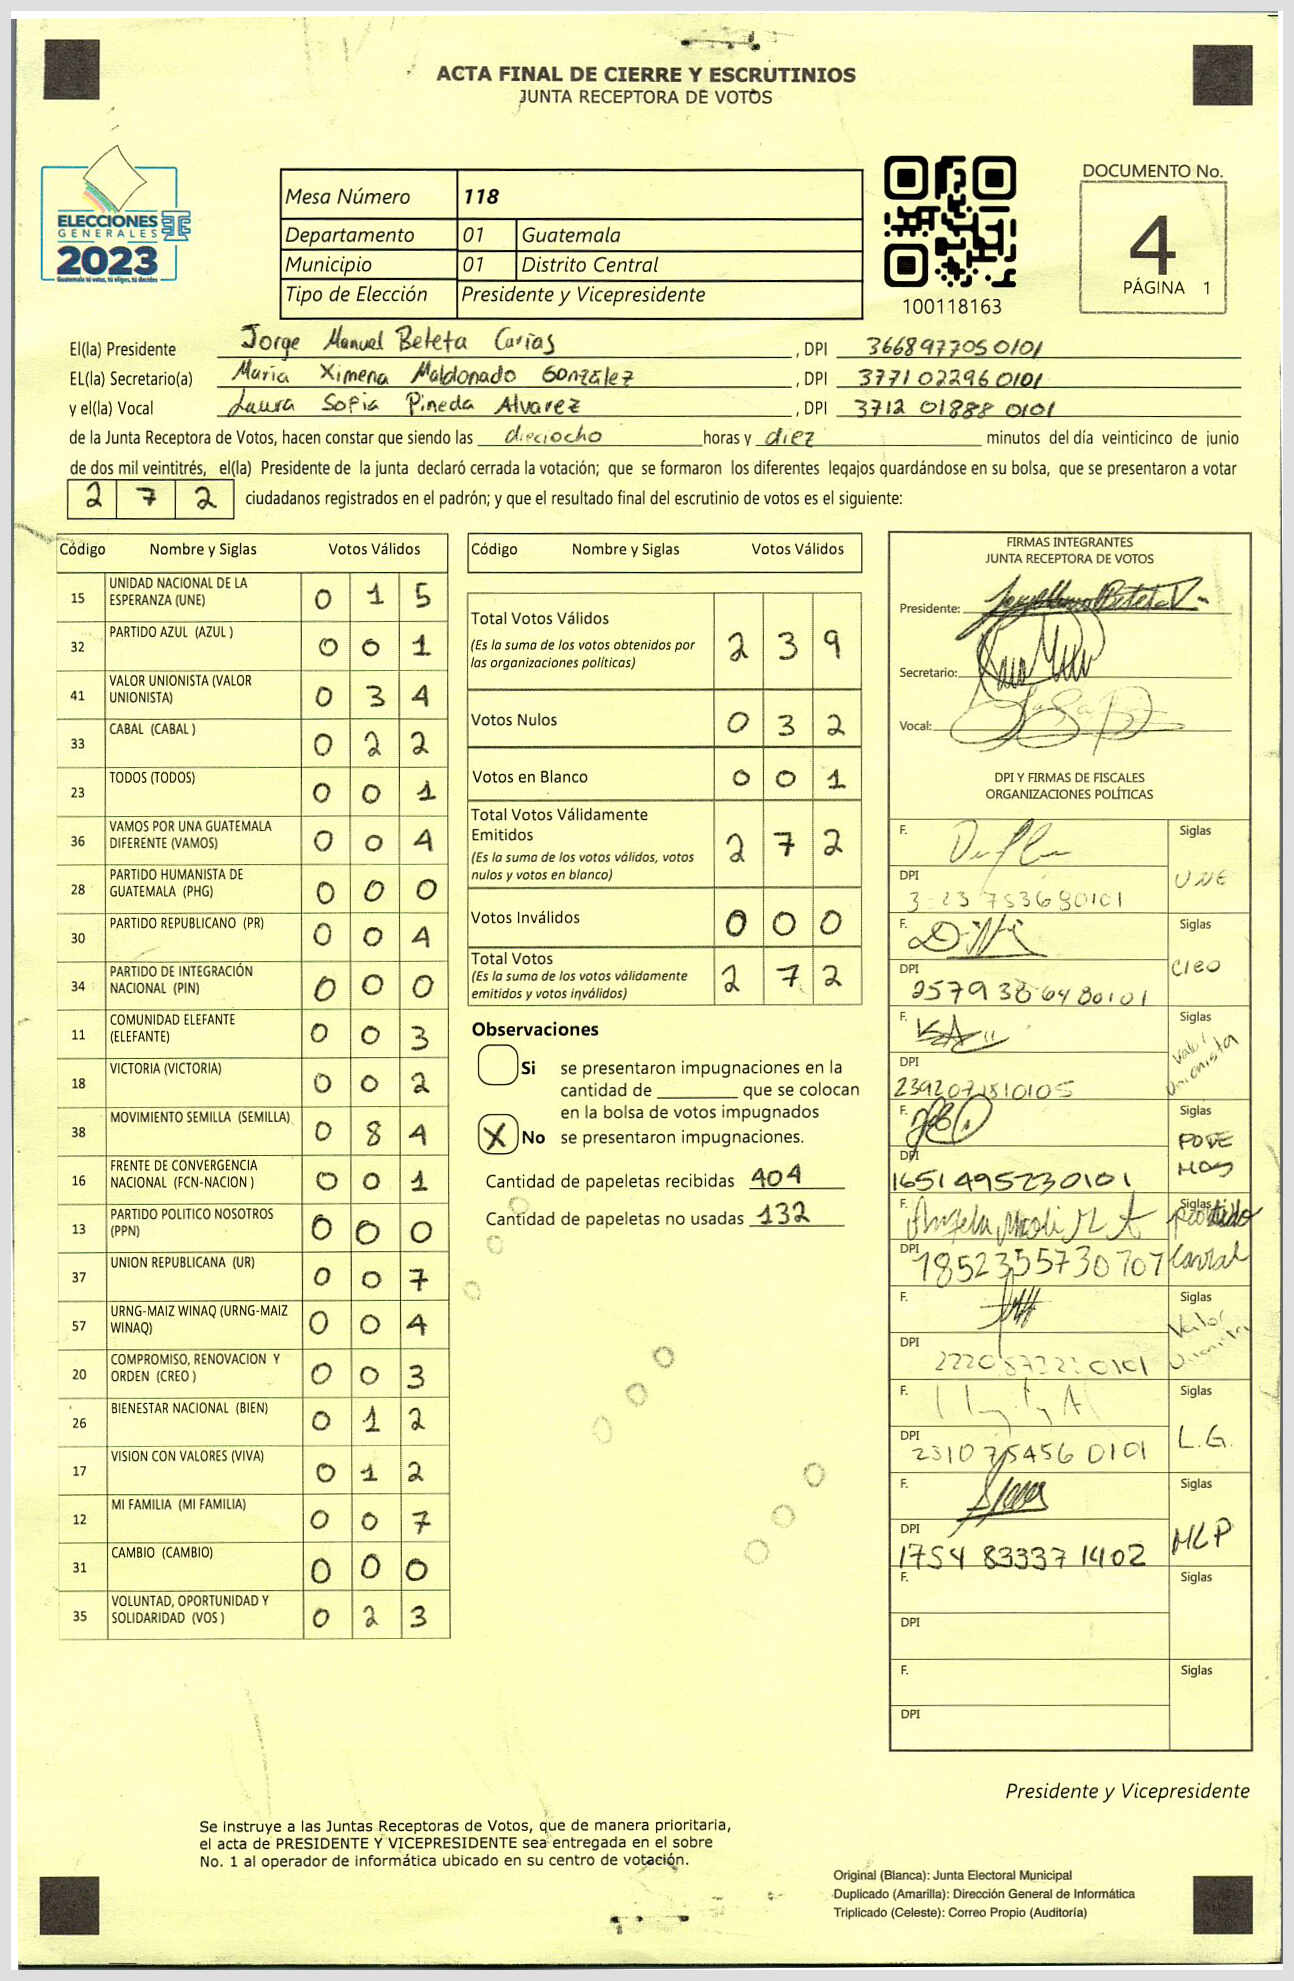 ACTA FINAL DE CIERRE Y ESCRUTINIOS
JUNTA RECEPTORA DE VOTOS
ELECCIONES
GENERALES
2023
Mesa Número 118
Departamento 01 Guatemala
Municipio 01 Distrito Central
Tipo de Elección Presidente y Vicepresidente
100118163
DOCUMENTO No.
4
PÁGINA 1
El(la) Presidente Jorge Manuel Beteta Carías , DPI 3668977050101
EL(la) Secretario(a) María Ximena Maldonado González , DPI 3771022960101
y el(la) Vocal Laura Sofia Pineda Alvarez , DPI 3712 01888 0101
de la Junta Receptora de Votos, hacen constar que siendo las dieciocho horas y diez minutos del día veinticinco de junio
de dos mil veintitrés, el(la) Presidente de la junta declaró cerrada la votación; que se formaron los diferentes legajos quardándose en su bolsa, que se presentaron a votar
2 7 2 ciudadanos registrados en el padrón; y que el resultado final del escrutinio de votos es el siguiente:
Código Nombre y Siglas Votos Válidos
15 UNIDAD NACIONAL DE LA ESPERANZA (UNE) 0 1 5
32 PARTIDO AZUL (AZUL ) 0 0 1
41 VALOR UNIONISTA (VALOR UNIONISTA) 0 3 4
33 CABAL (CABAL ) 0 2 2
23 TODOS (TODOS) 0 0 1
36 VAMOS POR UNA GUATEMALA DIFERENTE (VAMOS) 0 0 4
28 PARTIDO HUMANISTA DE GUATEMALA (PHG) 0 0 0
30 PARTIDO REPUBLICANO (PR) 0 0 4
34 PARTIDO DE INTEGRACIÓN NACIONAL (PIN) 0 0 0
11 COMUNIDAD ELEFANTE (ELEFANTE) 0 0 3
18 VICTORIA (VICTORIA) 0 0 2
38 MOVIMIENTO SEMILLA (SEMILLA) 0 8 4
16 FRENTE DE CONVERGENCIA NACIONAL (FCN-NACION ) 0 0 1
13 PARTIDO POLITICO NOSOTROS (PPN) 0 0 0
37 UNION REPUBLICANA (UR) 0 0 7
57 URNG-MAIZ WINAQ (URNG-MAIZ WINAQ) 0 0 4
20 COMPROMISO, RENOVACION Y ORDEN (CREO ) 0 0 3
26 BIENESTAR NACIONAL (BIEN) 0 1 2
17 VISION CON VALORES (VIVA) 0 1 2
12 MI FAMILIA (MI FAMILIA) 0 0 7
31 CAMBIO (CAMBIO) 0 0 0
35 VOLUNTAD, OPORTUNIDAD Y SOLIDARIDAD (VOS ) 0 2 3
Código Nombre y Siglas Votos Válidos
Total Votos Válidos 2 3 9
(Es la suma de los votos obtenidos por
las organizaciones políticas)
Votos Nulos 0 3 2
Votos en Blanco 0 0 1
Total Votos Válidamente
Emitidos 2 7 2
(Es la suma de los votos válidos, votos
nulos y votos en blanco)
Votos Inválidos 0 0 0
Total Votos 2 7 2
(Es la suma de los votos válidamente
emitidos y votos inválidos)
Observaciones
Si se presentaron impugnaciones en la
cantidad de ________ que se colocan
en la bolsa de votos impugnados
X No se presentaron impugnaciones.
Cantidad de papeletas recibidas 404
Cantidad de papeletas no usadas 132
FIRMAS INTEGRANTES
JUNTA RECEPTORA DE VOTOS
Presidente:
Secretario:
Vocal:
DPI Y FIRMAS DE FISCALES
ORGANIZACIONES POLÍTICAS
F. Siglas
DPI UNE
F. Siglas
DPI creo
2579386480101
F. Siglas
DPI Valor Unionista
2392071810105
F. Siglas
DPI PODEMOS
1651495230101
F. Siglas
DPI partido
1852355730707
F. Siglas
DPI Valor Unionista
F. Siglas
DPI L.G.
2310754560101
F. Siglas
DPI MLP
1754 83337 1402
F. Siglas
DPI
F. Siglas
DPI
Presidente y Vicepresidente
Se instruye a las Juntas Receptoras de Votos, que de manera prioritaria,
el acta de PRESIDENTE Y VICEPRESIDENTE sea entregada en el sobre
No. 1 al operador de informática ubicado en su centro de votación.
Original (Blanca): Junta Electoral Municipal
Duplicado (Amarilla): Dirección General de Informática
Triplicado (Celeste): Correo Propio (Auditoría)